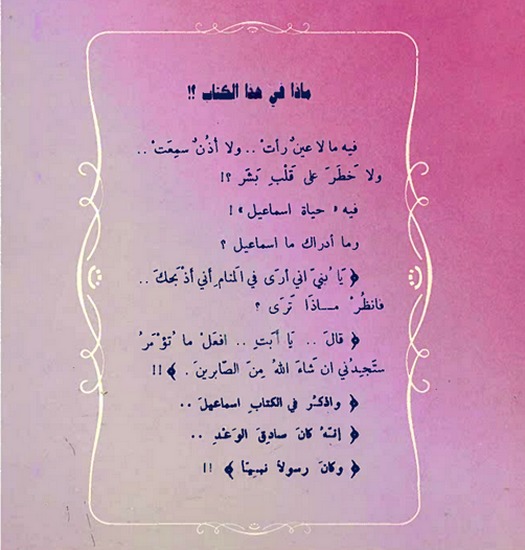 ماذا في هذا الكتاب ؟!
فيه ما لا عينٌ رأتْ .. ولا أذُنٌ سمِعَتْ ..
ولا خَطَرَ على قَلْبِ بَشَر ؟!
فيه « حياة اسماعيل » !
وما أدراك ما اسماعيل ؟
﴿ يَا بُنيّ اني أرَى في المَنامِ أني أذبَحكَ ..
فانظُرْ مــاذَا تَرَى ؟
﴿ قالَ .. يَا أبَتِ .. افعَلْ ما تُؤمَرُ
ستَجِدُني ان شَاءَ اللهُ مِنَ الصّابرينَ . ﴾ !!
﴿ واذكـُر في الكتابِ اسماعيلَ ..
﴿ إنـّهُ كانَ صادِقَ الوَعْدِ ..
﴿ وكانَ رسولاً نبـِيـّا ﴾ !!